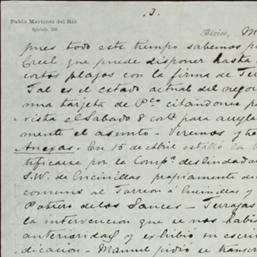 3.
Pablo Martinez del Rio
México, M
pues todo este tiempo sabemos p
Creel que puede disponer hasta
cortos plazos con la firma de Ter
Tal es el estado actual del nego
una tarjeta de Pco citandonos p
vista el Sabado 8 corte para arregla
mente el asunto - Veremos y ha
Anexas. En 15 de abril
tificarse por la Compa. deslindado
S.W. de Encinillas propiamente de
comun al Torreon á Encinillas y
Potrero de los Sauces - Terrazas
la intervencion que se nos habi
anterioridad y exhibió en escri
dicacion - Manuel pidió se transcr